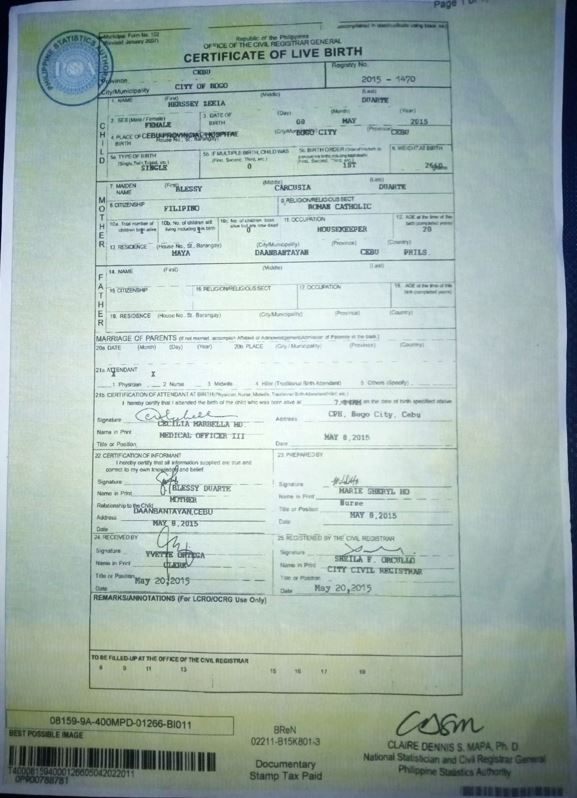 Page 1 of 1
Municipal Form No. 102
(Revised January 2007)
(accomplished in quadruplicate using black ink)
Republic of the Philippines
OFFICE OF THE CIVIL REGISTRAR GENERAL
CERTIFICATE OF LIVE BIRTH
PHILIPPINE STATISTICS AUTHORITY
Province CEBU
City/Municipality CITY OF BOGO
Registry No. 2015 - 1470
CHILD
1. NAME (First) (Middle) (Last)
HERSSEY ZEKIA DUARTE
2. SEX (Male / Female) FEMALE
3. DATE OF BIRTH (Day) (Month) (Year)
08 MAY 2015
4. PLACE OF BIRTH CEBU PROVINCIAL HOSPITAL
House No., St., Barangay (City/Municipality) BOGO CITY (Province) CEBU
5a. TYPE OF BIRTH (Single, Twin, Triplet, etc.) SINGLE
5b. IF MULTIPLE BIRTH, CHILD WAS (First, Second, Third, etc.) 0
5c. BIRTH ORDER (First, Second, Third, etc.) 1ST
6. WEIGHT AT BIRTH
MOTHER
7. MAIDEN NAME (First) (Middle) (Last)
BLESSY CARCUSIA DUARTE
8. CITIZENSHIP FILIPINO
9. RELIGION/RELIGIOUS SECT ROMAN CATHOLIC
10a. Total number of children born alive 1
10b. No. of children still living including this birth 1
10c. No. of children born alive but are now dead 0
11. OCCUPATION HOUSEKEEPER
12. AGE at the time of this birth (completed years) 20
13. RESIDENCE (House No., St., Barangay) (City/Municipality) (Province) (Country)
MAYA DAANBANTAYAN CEBU PHILS.
FATHER
14. NAME (First) (Middle) (Last)
15. CITIZENSHIP
16. RELIGION/RELIGIOUS SECT
17. OCCUPATION
18. AGE at the time of this birth (completed years)
19. RESIDENCE (House No., St., Barangay) (City/Municipality) (Province) (Country)
MARRIAGE OF PARENTS (If not married, accomplish Affidavit of Acknowledgement/Admission of Paternity at the back.)
20a. DATE (Month) (Day) (Year) 20b. PLACE (City / Municipality) (Province) (Country)
21a. ATTENDANT
X
1 Physician 2 Nurse 3 Midwife 4 Hilot (Traditional Birth Attendant) 5 Others (Specify)
21b. CERTIFICATION OF ATTENDANT AT BIRTH (Physician, Nurse, Midwife, Traditional Birth Attendant/Hilot, etc.)
I hereby certify that I attended the birth of the child who was born alive at on the date of birth specified above
Signature
CECILIA MARBELLA MD
Name in Print
MEDICAL OFFICER III
Title or Position
Address CPH, Bogo City, Cebu
Date MAY 8, 2015
22. CERTIFICATION OF INFORMANT
I hereby certify that all information supplied are true and
correct to my own knowledge and belief
Signature
BLESSY DUARTE
Name in Print
MOTHER
Relationship to the Child
DAANBANTAYAN, CEBU
Address
MAY 8, 2015
Date
23. PREPARED BY
Signature
MARIE SHERYL HO
Name in Print
Nurse
Title or Position
MAY 8, 2015
Date
24. RECEIVED BY
Signature
YVETTE ORTEGA
Name in Print
CLERK
Title or Position
May 20, 2015
Date
25. REGISTERED BY THE CIVIL REGISTRAR
Signature
SHEILA F. ORCULLO
Name in Print
CITY CIVIL REGISTRAR
Title or Position
Date May 20, 2015
REMARKS/ANNOTATIONS (For LCRO/OCRG Use Only)
TO BE FILLED-UP AT THE OFFICE OF THE CIVIL REGISTRAR
8 9 11 13 15 16 17 19
08159-9A-400MPD-01266-BI011
BEST POSSIBLE IMAGE
T400081594000126605042022011
BReN
02211-B15K801-3
Documentary
Stamp Tax Paid
CLAIRE DENNIS S. MAPA, Ph. D
National Statistician and Civil Registrar General
Philippine Statistics Authority